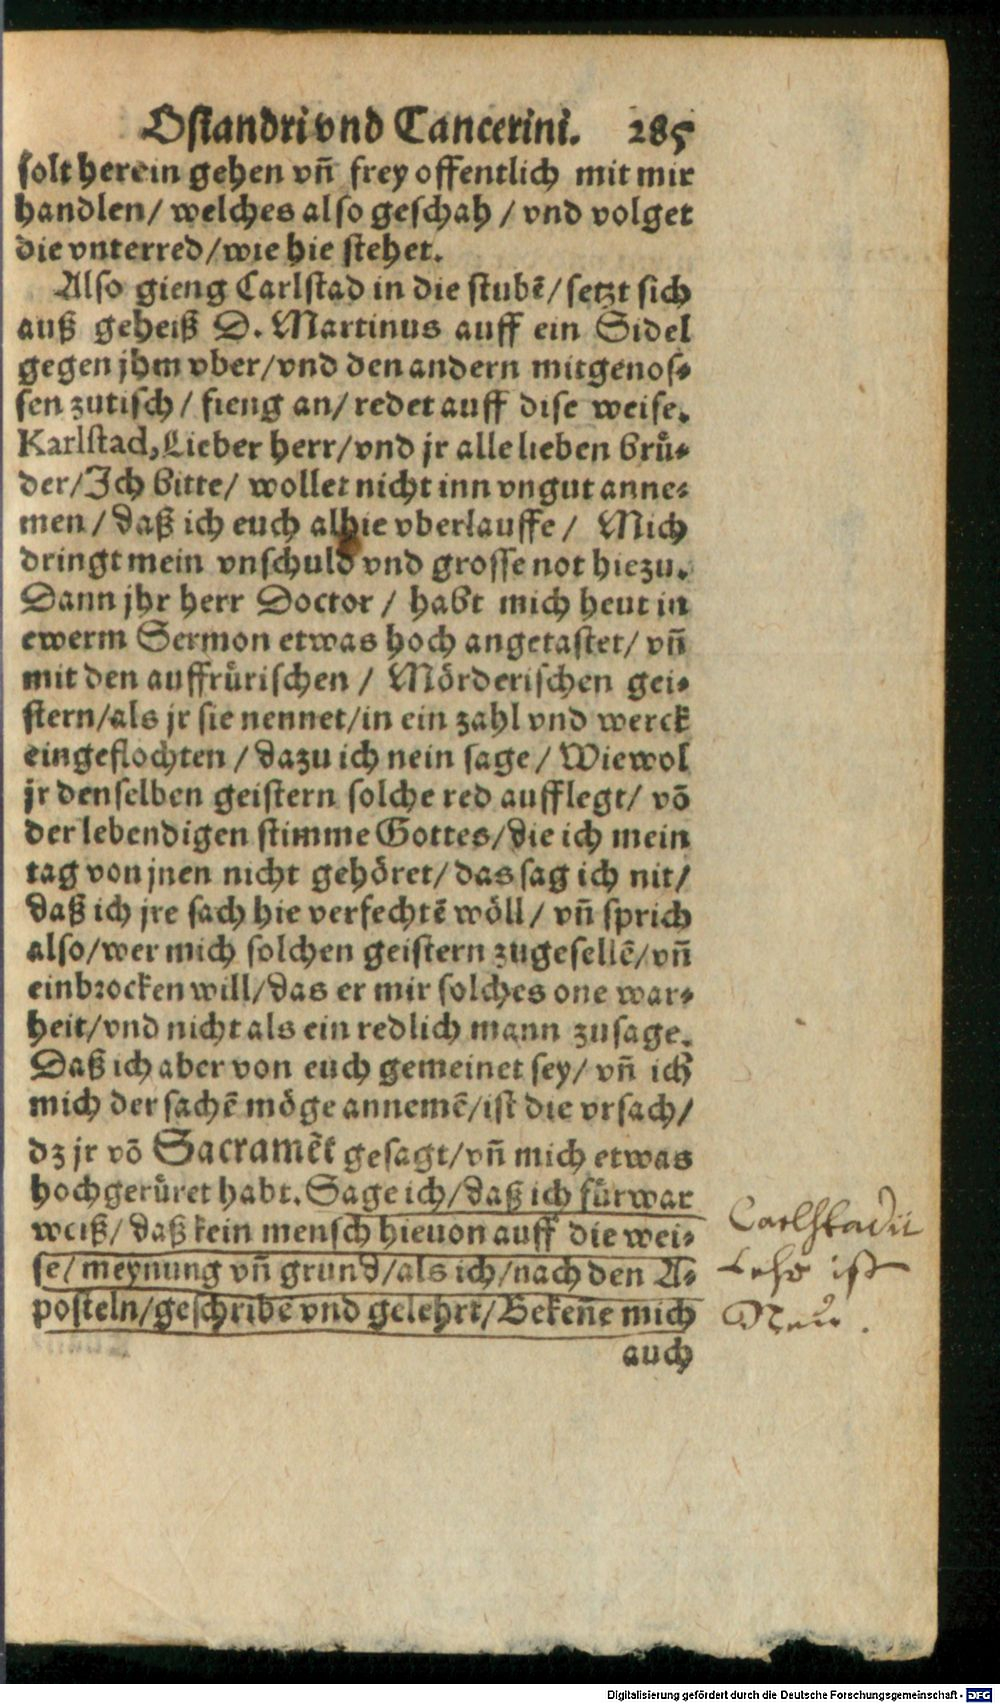 Osiandri vnd Cancerini. 285
solt herein gehen vn̄ frey offentlich mit mir
handlen/ welches also geschah / vnd volget
die vnterred/wie hie stehet.
Also gieng Carlstad in die stubē/ setzt sich
auß geheiß D. Martinus auff ein Sidel
gegen jhm vber/vnd den andern mitgenos⸗
sen zutisch / fieng an/ redet auff dise weise.
Karlstad, Lieber herr/vnd jr alle lieben brůͤ⸗
der/Ich bitte/ wollet nicht inn vngut anne⸗
men / daß ich euch alhie vberlauffe / Mich
dringt mein vnschuld vnd grosse not hiezu.
Dann jhr herr Doctor / habt mich heut in
ewerm Sermon etwas hoch angetastet/ vn̄
mit den auffrůrischen / Mörderischen gei⸗
stern/als jr sie nennet/in ein zahl vnd werck
eingeflochten / dazu ich nein sage / Wiewol
jr denselben geistern solche red aufflegt/ vō
der lebendigen stimme Gottes/die ich mein
tag von jnen nicht gehöret/ das sag ich nit/
daß ich jre sach hie verfechtē wöll/ vn̄ sprich
also/wer mich solchen geistern zugesellē/vn̄
einbrocken will/das er mir solches one war⸗
heit/vnd nicht als ein redlich mann zusage.
Daß ich aber von euch gemeinet sey/ vn̄ ich
mich der sachē möge annemē/ist die vrsach/
dz jr vō Sacramēt gesagt/vn̄ mich etwas
hochgerůret habt. Sage ich/daß ich fůrwar
weiß/ daß kein mensch hieuon auff die wei⸗
se/ meynung vn̄ grund/als ich/nach den A⸗
posteln/geschribē vnd gelehrt/Beken̄e mich
auch
Carlstadii
Lehr ist
Neu.
Digitalisierung gefördert durch die Deutsche Forschungsgemeinschaft - DFG